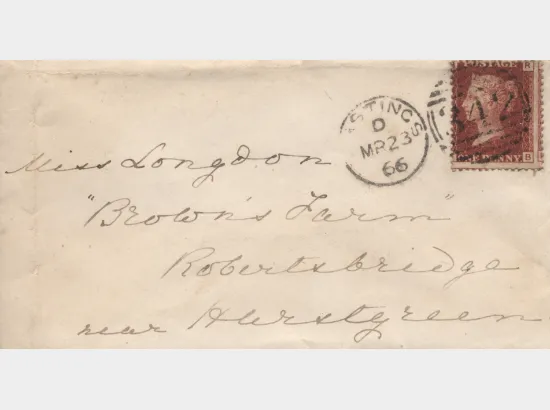 POSTAGE
HASTINGS
D
MR 23
66
Miss Longdon
"Brown's Farm"
Robertsbridge
near Hurstgreen